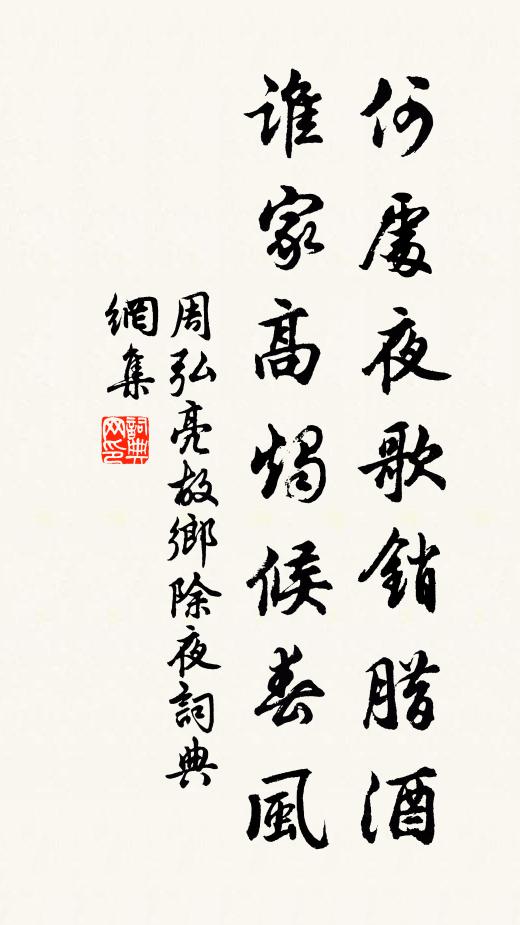 何處夜歌銷腊酒
誰家高燭候春風
周弘亮故鄉除夜詞典
網集
詞典網印